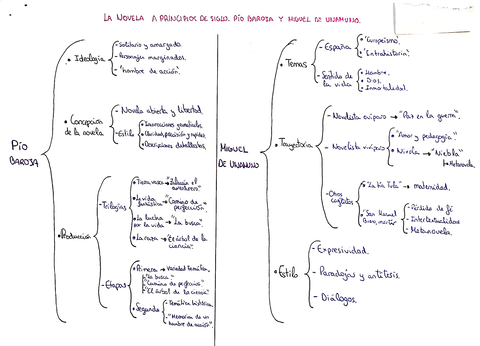 LA NOVELA A PRINCIPIOS DE SIGLO. PÍO BAROJA Y MIGUEL DE UNAMUNO.
PÍO
BAROJA
• Ideología
- Solitario y amargado.
- Personajes marginados.
- "hombre de acción".
• Concepción
de la novela
- Novela abierta y libertad.
- Estilo
• Incorrecciones gramaticales
• Claridad, precisión y rapidez.
• Descripciones detallistas.
• Producción
- Trilogías
• Tierra vasca → "Zalacaín el
aventurero".
• La vida
fantástica → "Camino de
perfección".
• La lucha
por la vida → "La busca".
• La raza → "El árbol de la
ciencia".
- Etapas
• Primera → Variedad temática.
"La busca"
"Camino de perfección"
"El árbol de la ciencia"
• Segunda
- Temática histórica.
- "Memorias de un
hombre de acción".
MIGUEL
DE UNAMUNO
• Temas
- España
• "Europeísmo".
• "Intrahistoria".
- Sentido de
la vida
• Hombre.
• Dios.
• Inmortalidad.
• Trayectoria
- Novelista ovíparo → "Paz en la guerra".
- Novelista vivíparo
• "Amor y pedagogía".
• Nivola → "Niebla"
↳ Metanovela.
- Otros
• "La tía Tula" → maternidad.
• "San Manuel
Bueno, mártir"
• Pérdida de fe
• Intertextualidad
• Metanovela.
• Estilo
- Expresividad.
- Paradojas y antítesis.
- Diálogos.